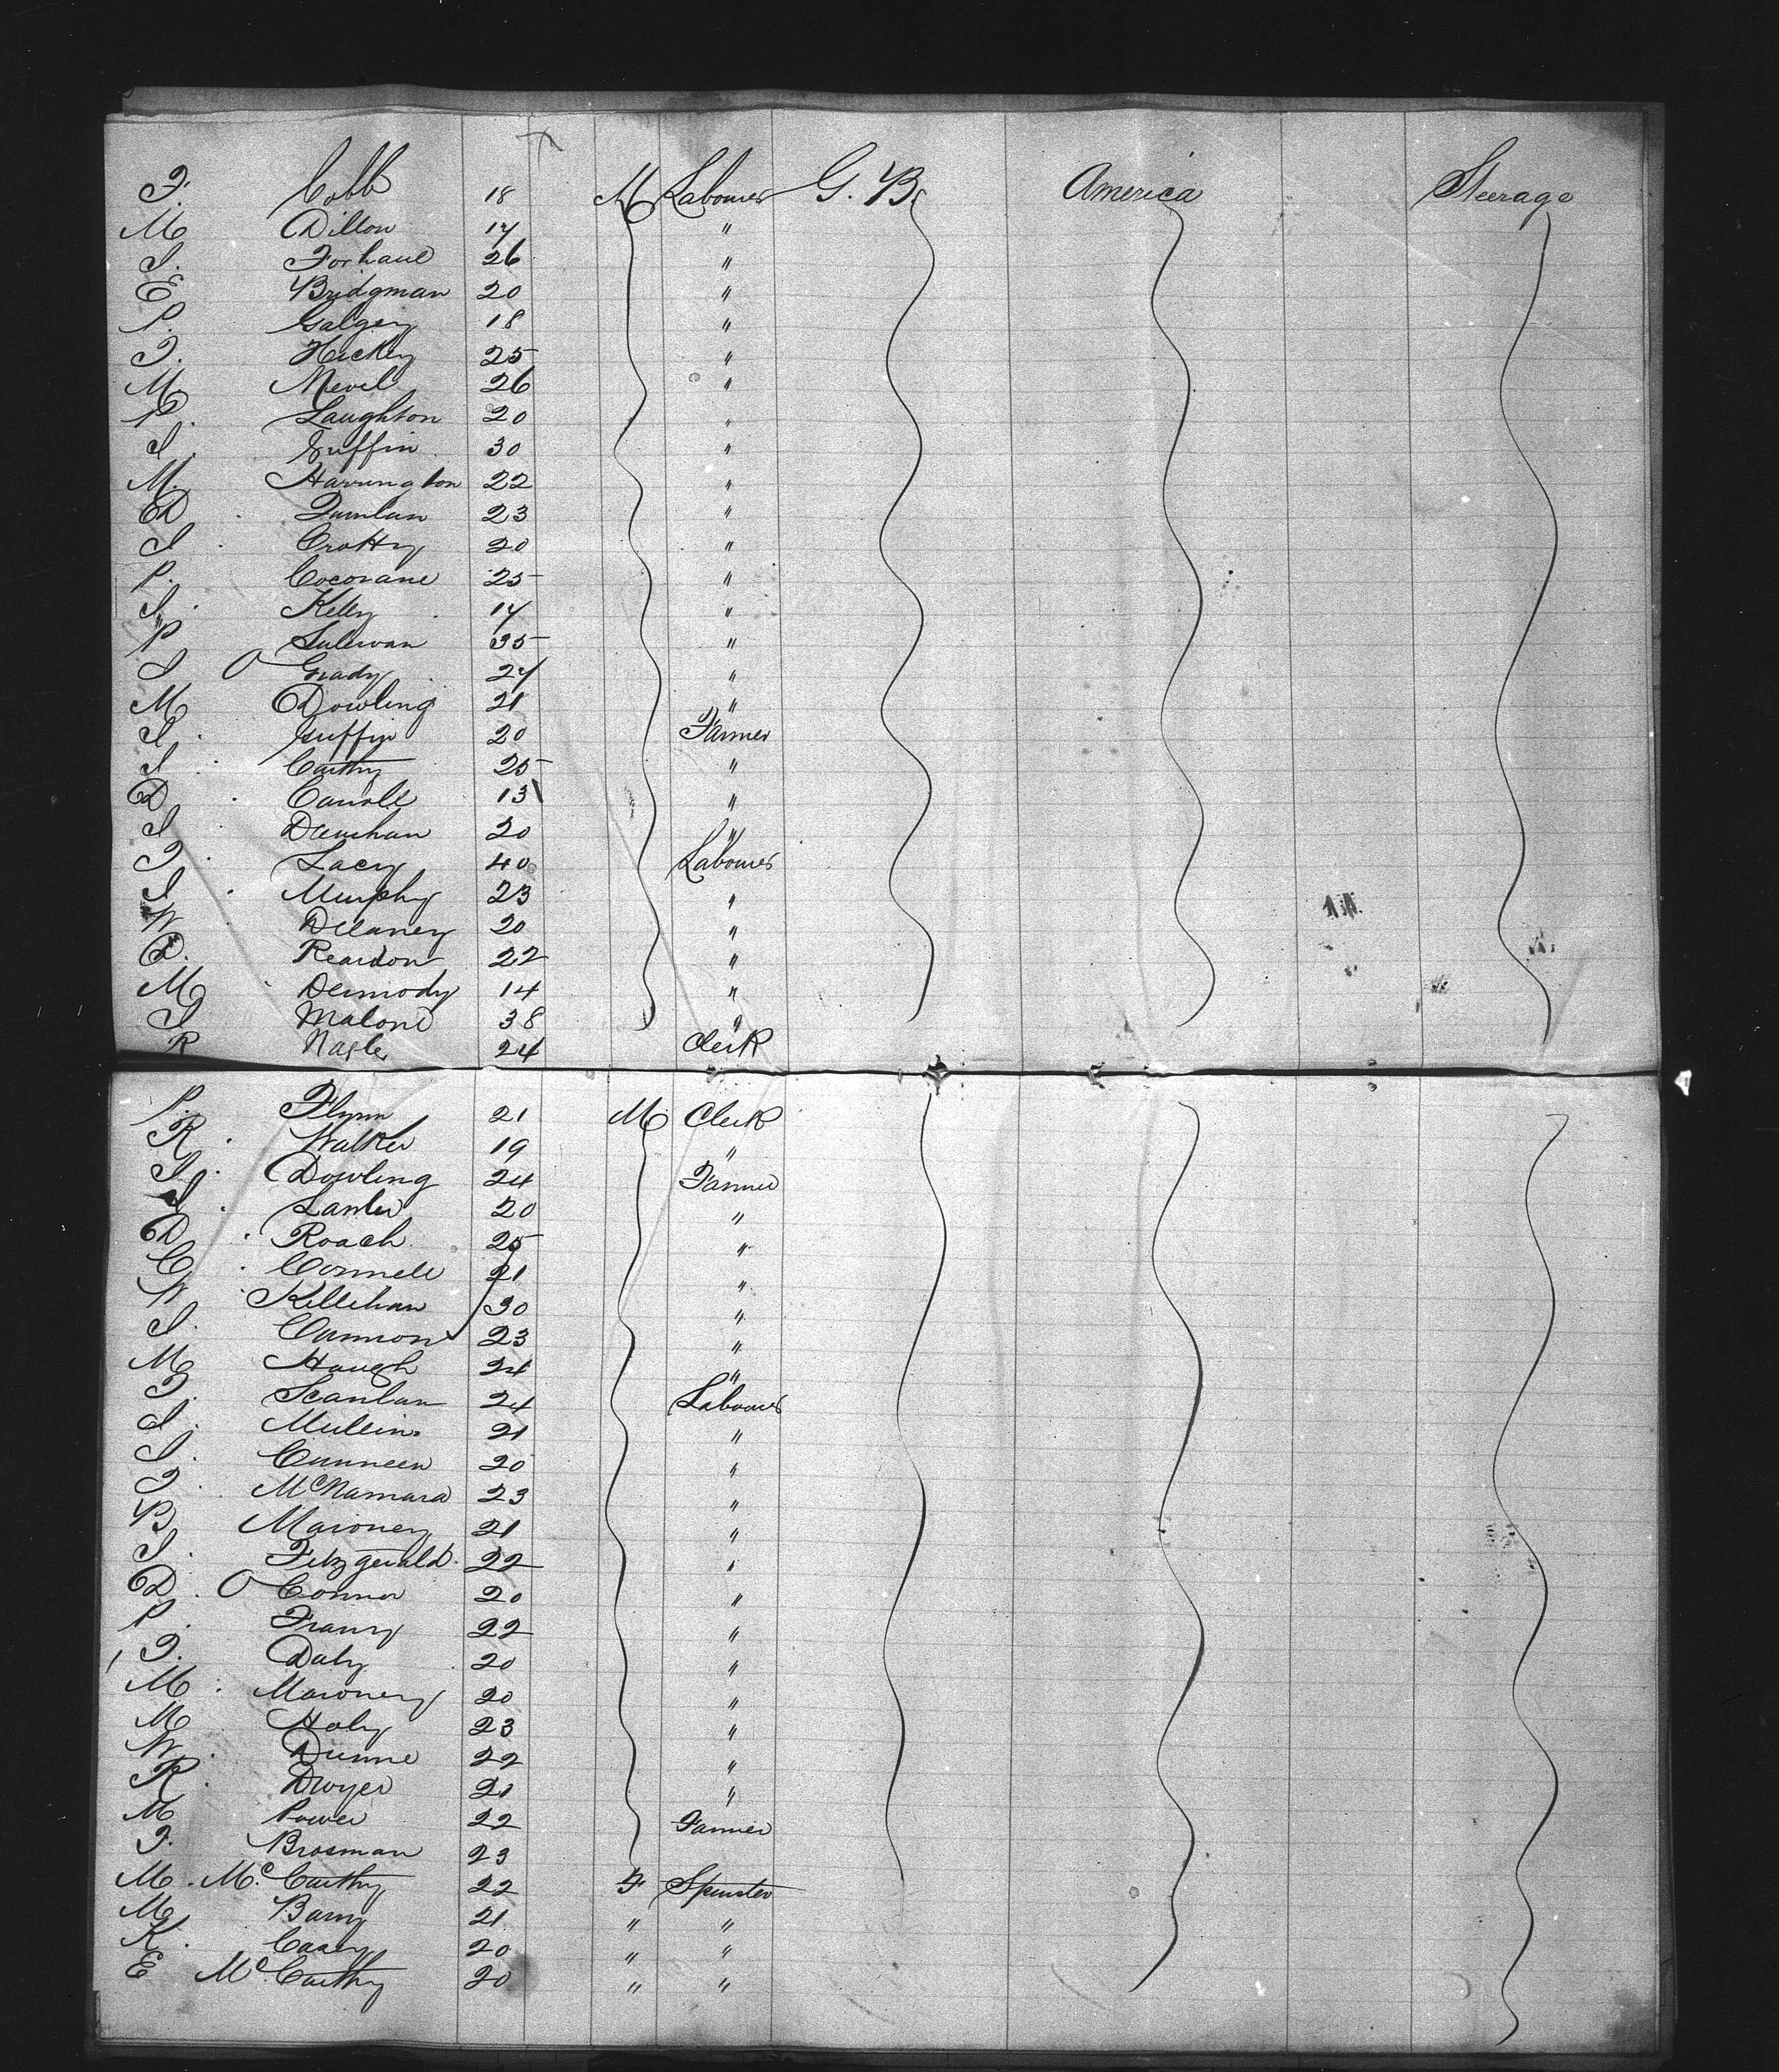 T. Cobb 18 M Labourer G. B. America Steerage
M Dillon 17 "
J. Forhane 26 "
E Bridgman 20 "
P. Galgey 18 "
T. Hickey 25 "
M 26 "
P. Laughton 20 "
J. Griffin 30 "
M. Harrington 22 "
D. Quinlan 23 "
J. Crotty 20 "
P. Cocorane 25 "
J. Kelly 17 "
P Sulivan 35 "
J O Grady 27 "
M Dowling 21 "
J. Griffin 20 Farmer
J. Carthy 25 "
D. Carroll 13 "
J. Drenehan 20 "
T. Lacy 40 Labourer
J. Murphy 23 "
W. Delaney 20 "
D. Reardon 22 "
M. Dermody 14 "
J Malone 38 "
R Nagle 24 Clerk
P. Flynn 21 M Clerk
R. Walker 19 "
J. Dowling 24 Farmer
J. Lawler 20 "
D. Roach 25 "
C. Connell 21 "
W. Killehan 30 "
J. Cannon 23 "
M Haugh 24 "
T. Scanlan 24 Labourer
J. Mullins 21 "
J. Cunneen 20 "
T. McNamara 23 "
B. Maroney 21 "
J. Fitzgerald 22 "
D. O Connor 20 "
P. 22 "
T. Daly 20 "
M. Maroney 20 "
M Holy 23 "
W. Dunne 22 "
R. Dwyer 21 "
M Power 22 Farmer
T. Brosman 23
M. Mc. Carthy 22 F Spinster
M Barry 21 " "
K. Casey 20 " "
E Mc. Carthy 20 " "